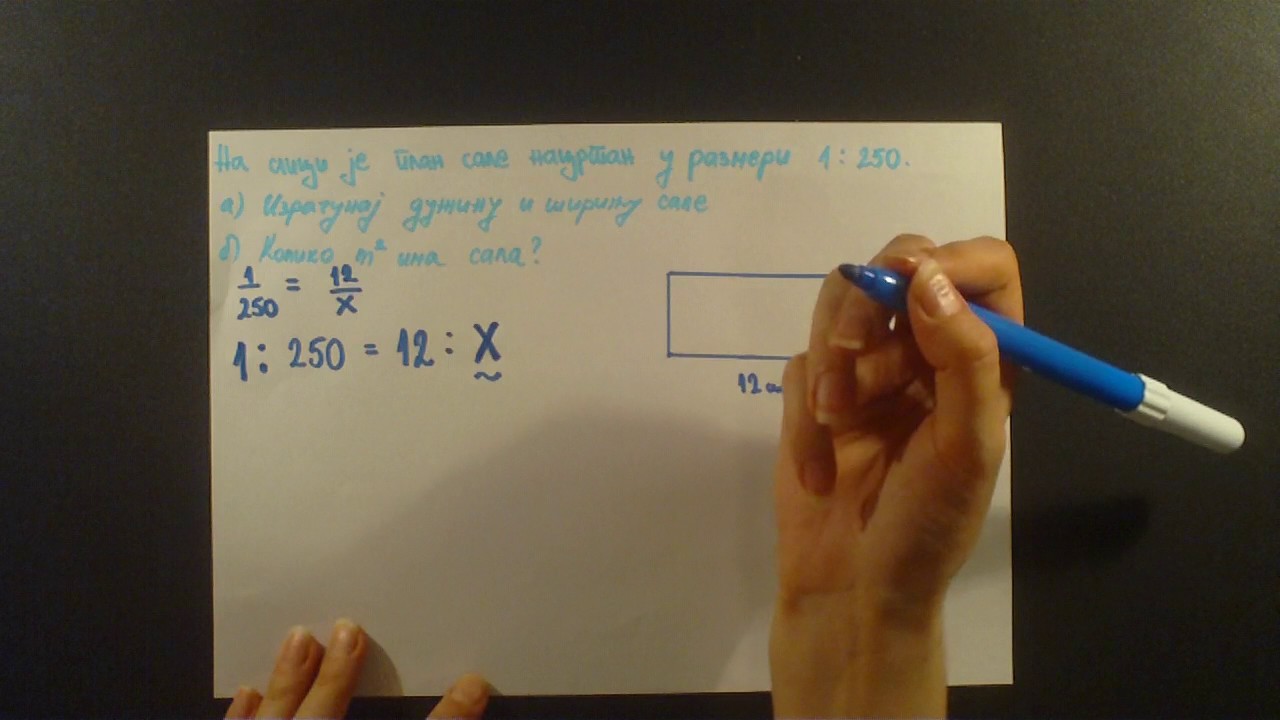 На слици је план сале нацртан у размери 1 : 250.
а) Израчунај дужину и ширину сале
б) Колико m² има сала?
1/250 = 12/x
1 : 250 = 12 : x
12